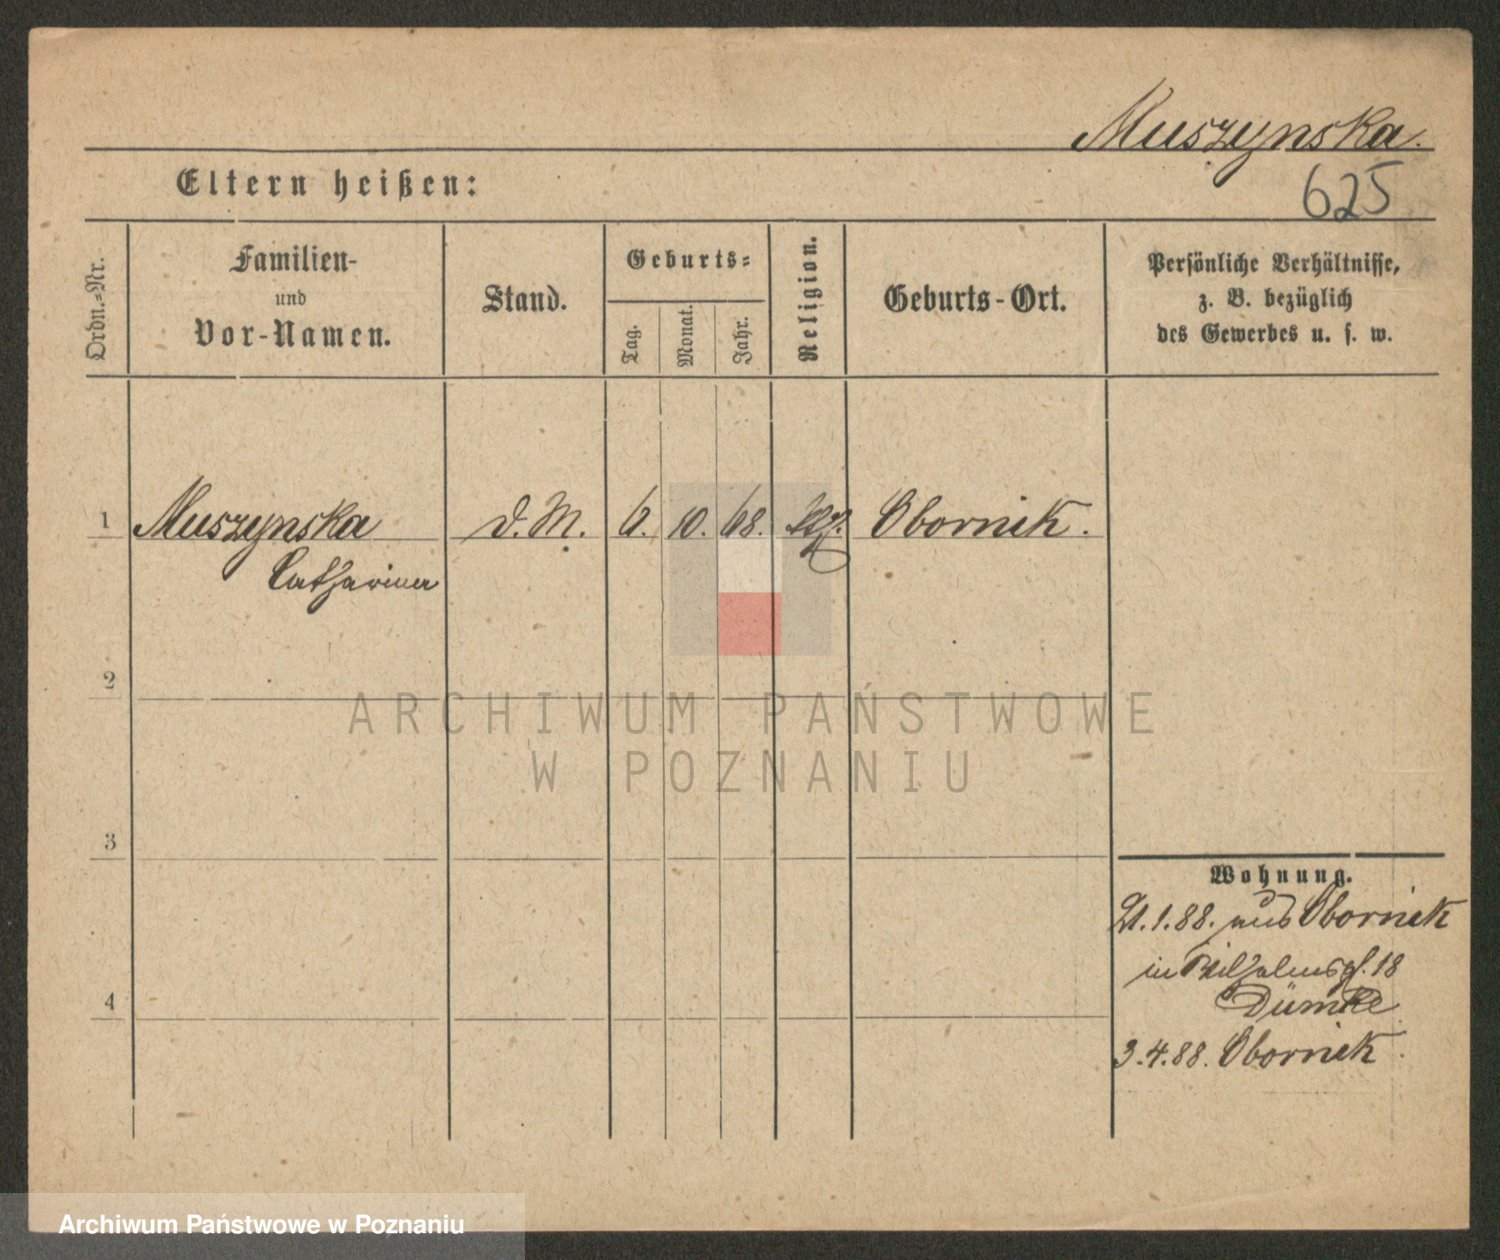 Muszynska.
Eltern heißen:
625
Ordn.=Nr.
Familien-
und
Vor-Namen.
Stand.
Geburts=
Tag.
Monat.
Jahr.
Religion.
Geburts-Ort.
Persönliche Verhältnisse,
z. B. bezüglich
des Gewerbes u. s. w.
1 Muszynska d. M. 6. 10. 68. Obornik.
Catharina
2
3
4
Wohnung.
21.1.88. aus Obornik
in Wilhelmspl. 18
Dümke
3.4.88. Obornik.
ARCHIWUM PAŃSTWOWE
W POZNANIU
Archiwum Państwowe w Poznaniu